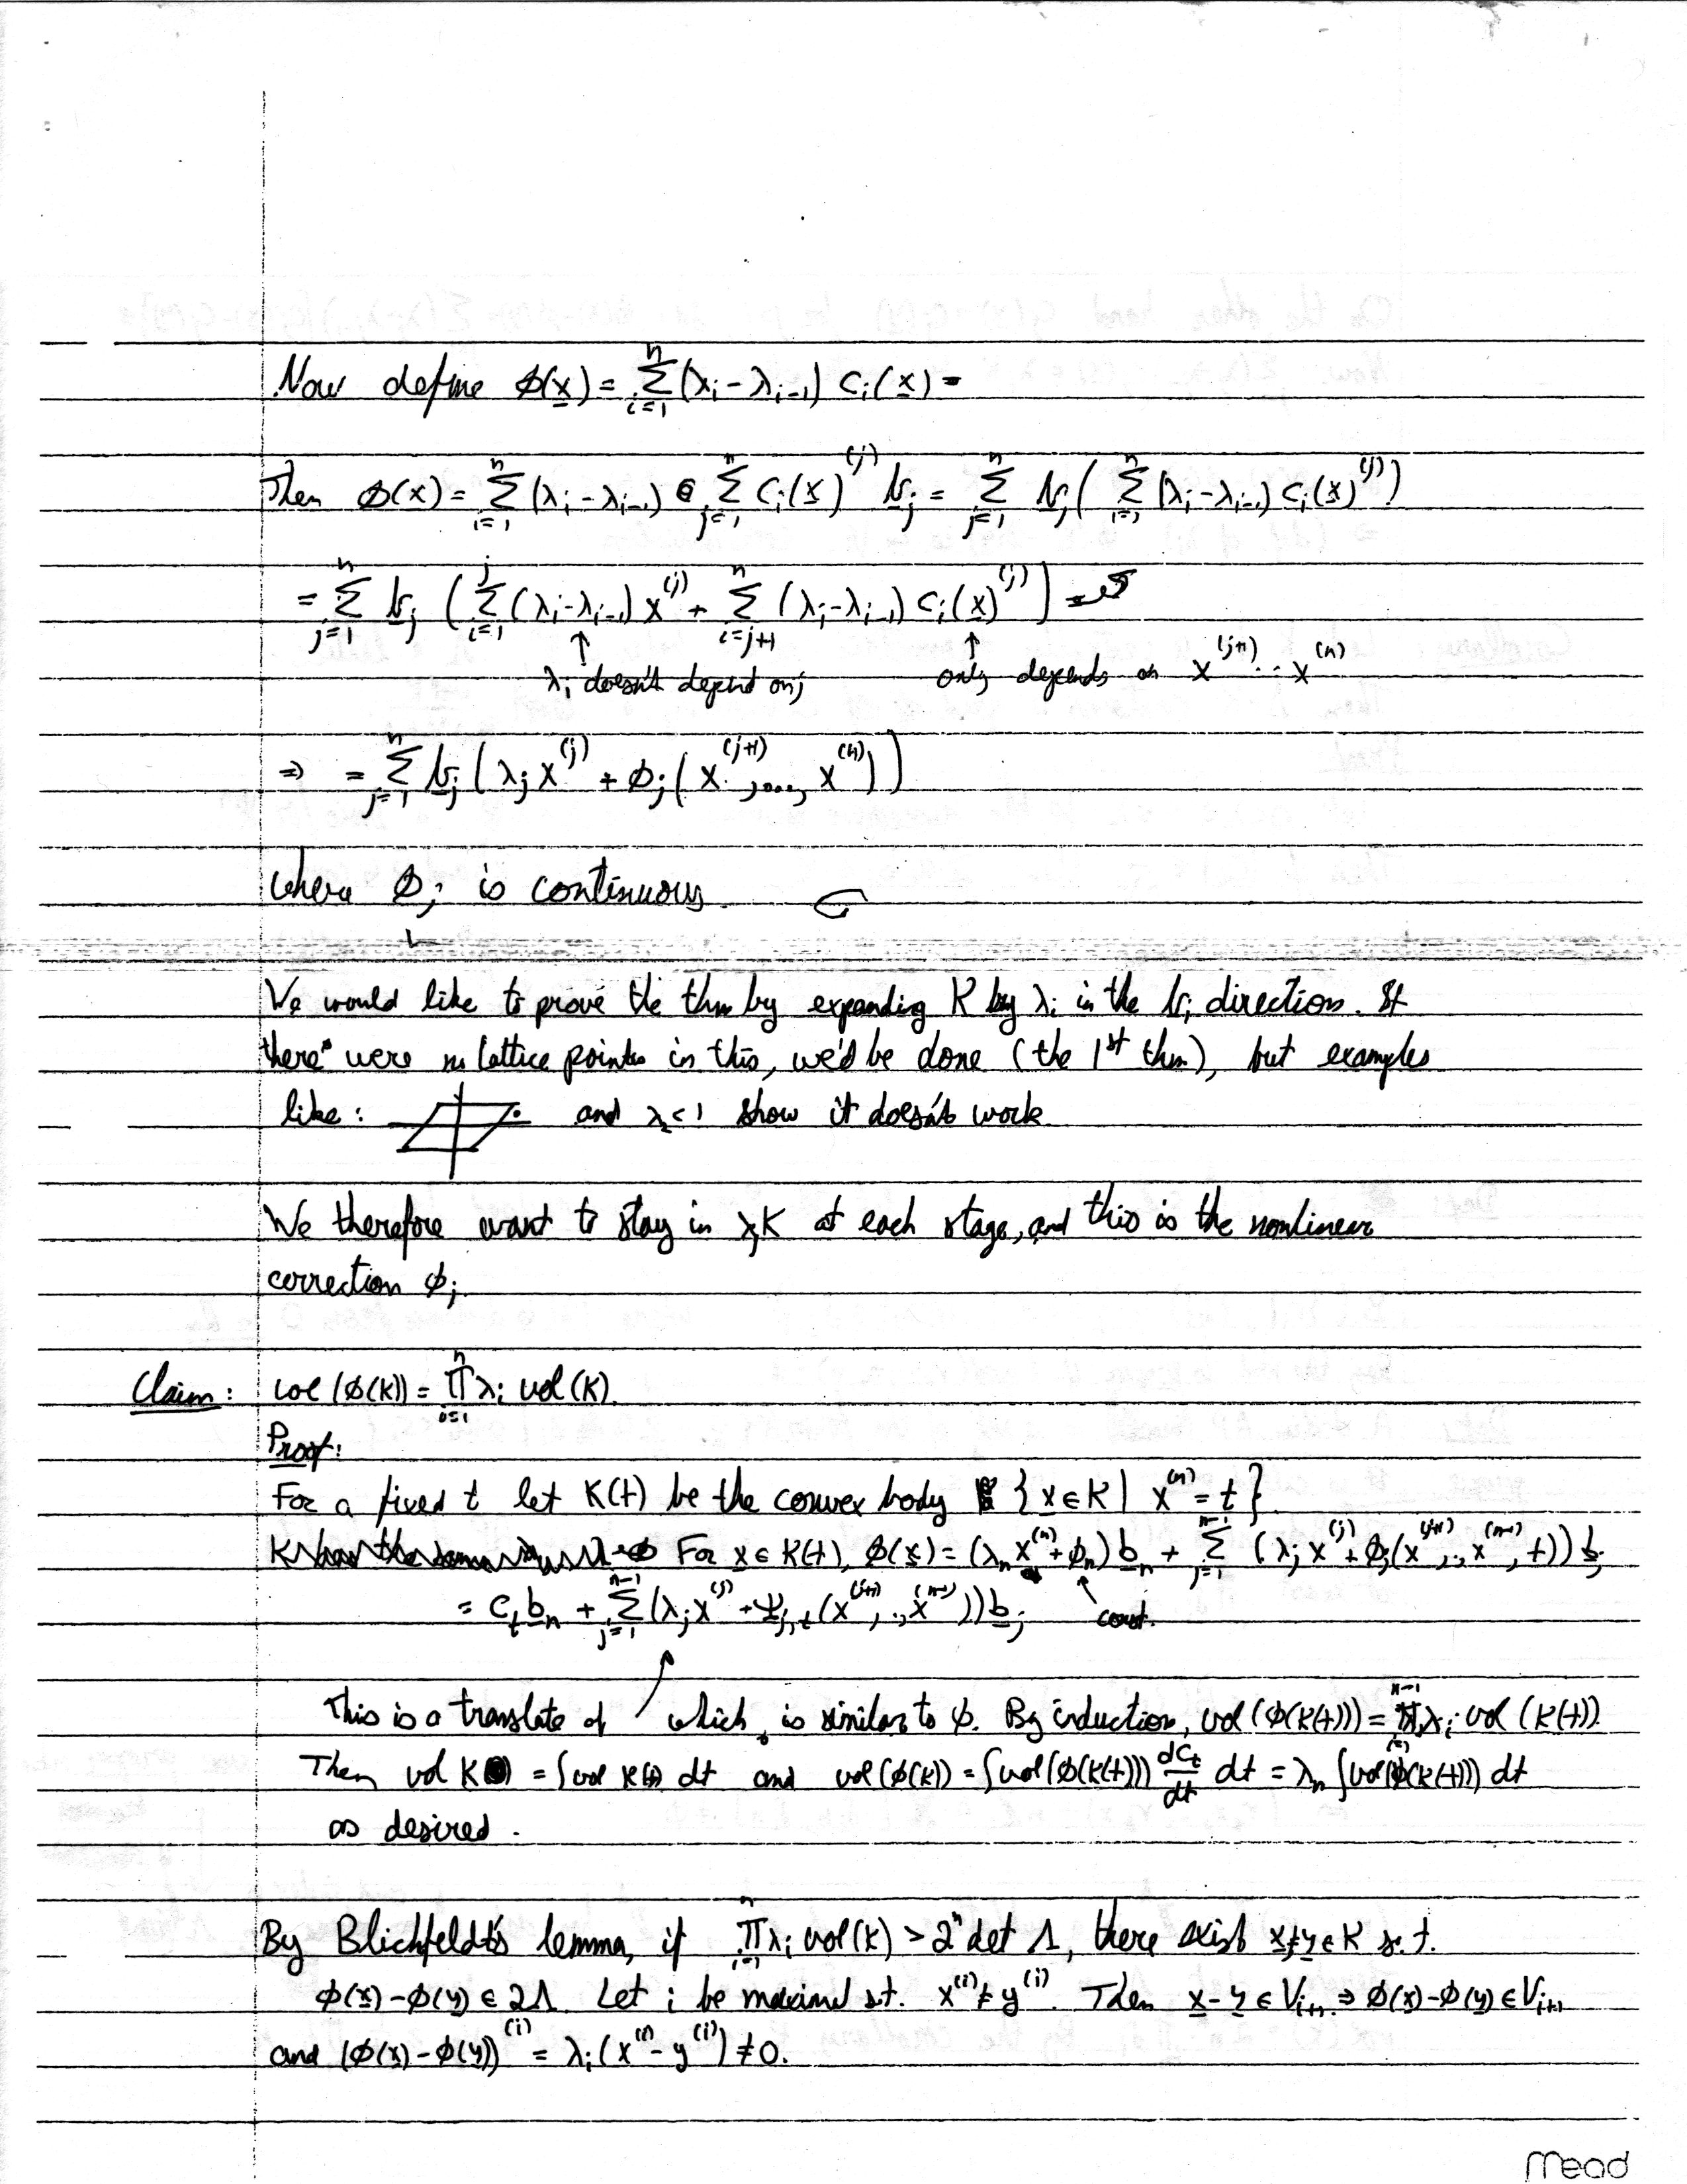 Now define ϕ(x) = Σ_{i=1}^{n} (λ_i - λ_{i-1}) C_i(x)
Then ϕ(x) = Σ_{i=1}^{n} (λ_i - λ_{i-1}) Σ_{j=1}^{n} C_i(x)^{(j)} b_j = Σ_{j=1}^{n} b_j ( Σ_{i=1}^{n} (λ_i - λ_{i-1}) C_i(x)^{(j)} )
= Σ_{j=1}^{n} b_j ( Σ_{i=1}^{j} (λ_i - λ_{i-1}) x^{(j)} + Σ_{i=j+1}^{n} (λ_i - λ_{i-1}) C_i(x)^{(j)} )
↑ λ_i doesn't depend on j ↑ only depends on x^{(j+1)} ... x^{(n)}
⇒ = Σ_{j=1}^{n} b_j ( λ_j x^{(j)} + ϕ_j ( x^{(j+1)}, ..., x^{(n)} ) )
where ϕ_j is continuous.
We would like to prove the thm by expanding K by λ_i in the b_i direction. If
there were no lattice points in this, we'd be done (the 1st thm), but examples
like: and λ_2<1 show it doesn't work
We therefore want to stay in λ_j K at each stage, and this is the nonlinear
correction ϕ_j.
Claim: vol(ϕ(K)) = Π_{i=1}^{n} λ_i vol(K).
Proof:
For a fixed t let K(t) be the convex body { x ∈ K | x^{(n)} = t }
For x ∈ K(t), ϕ(x) = (λ_n x^{(n)} + ϕ_n) b_n + Σ_{j=1}^{n-1} (λ_j x^{(j)} + ϕ_j(x^{(j+1)}, .., x^{(n-1)}, t)) b_j
= C_t b_n + Σ_{j=1}^{n-1} (λ_j x^{(j)} + ψ_{j,t} (x^{(j+1)}, .., x^{(n-1)})) b_j ↑ const.
This is a translate of ↗ which is similar to ϕ. By induction, vol(ϕ(K(t))) = Π_{i=1}^{n-1} λ_i vol(K(t)).
Then vol K = ∫ vol K(t) dt and vol(ϕ(K)) = ∫ vol(ϕ(K(t))) dC_t/dt dt = λ_n ∫ vol(ϕ(K(t))) dt
as desired.
By Blichfeldt's lemma, if Π_{i=1}^{n} λ_i vol(K) > 2^n det Λ, there exist x≠y ∈ K s.t.
ϕ(x) - ϕ(y) ∈ 2Λ. Let i be maximal s.t. x^{(i)} ≠ y^{(i)}. Then x - y ∈ V_{i+1} ⇒ ϕ(x) - ϕ(y) ∈ V_{i+1}
and (ϕ(x) - ϕ(y))^{(i)} = λ_i (x^{(i)} - y^{(i)}) ≠ 0.
Mead